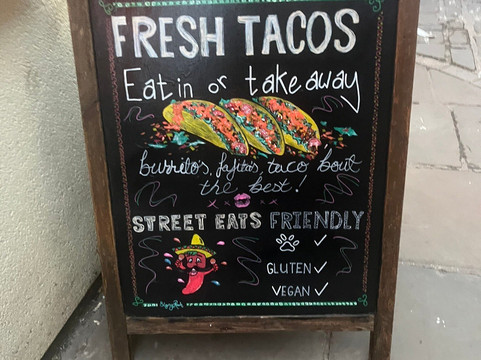 FRESH TACOS
Eat in or take away
burrito's, fajitas, taco bowl
the best!
STREET EATS FRIENDLY
GLUTEN ✓
VEGAN ✓